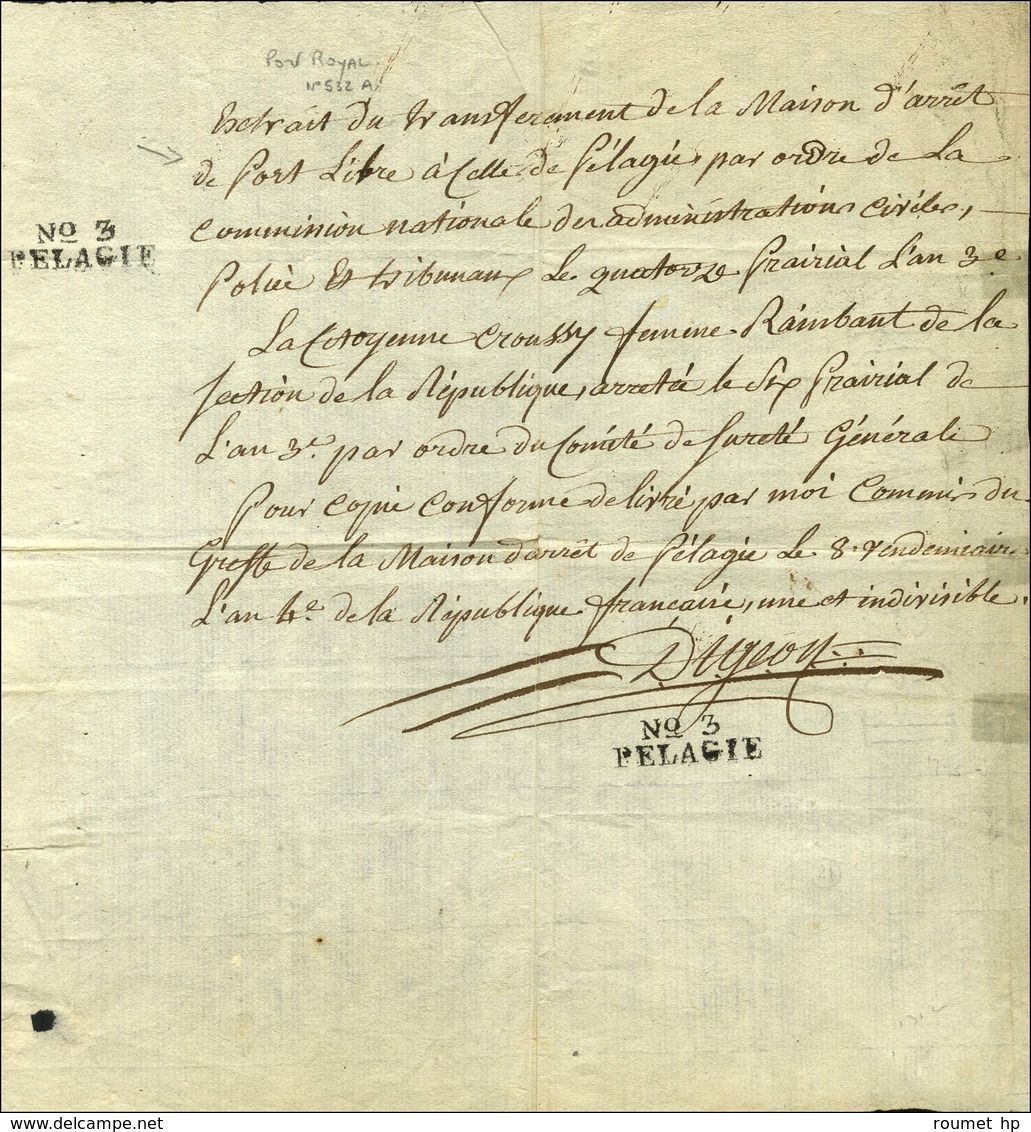 Port ROYAL
N° 532 A
Extrait du transferement de la Maison d'arrêt
de Port Libre à Celle de Pélagie, par ordre de La
commission nationale des administrations civiles,
No 3
PELAGIE
Police Et tribunaux Le quatorze Prairial L'an 3e
La Citoyenne Croussy femme Raimbaut de la
section de la République, arretée le Six Prairial de
L'an 3e. par ordre du Comité de Sureté Générale
Pour copie conforme delivré par moi Commis du
Greffe de la Maison d'arrêt de Pélagie Le 8. Vendemiaire
L'an 4e. de la République française, une et indivisible.
Digeon
No 3
PELAGIE
roumet hp